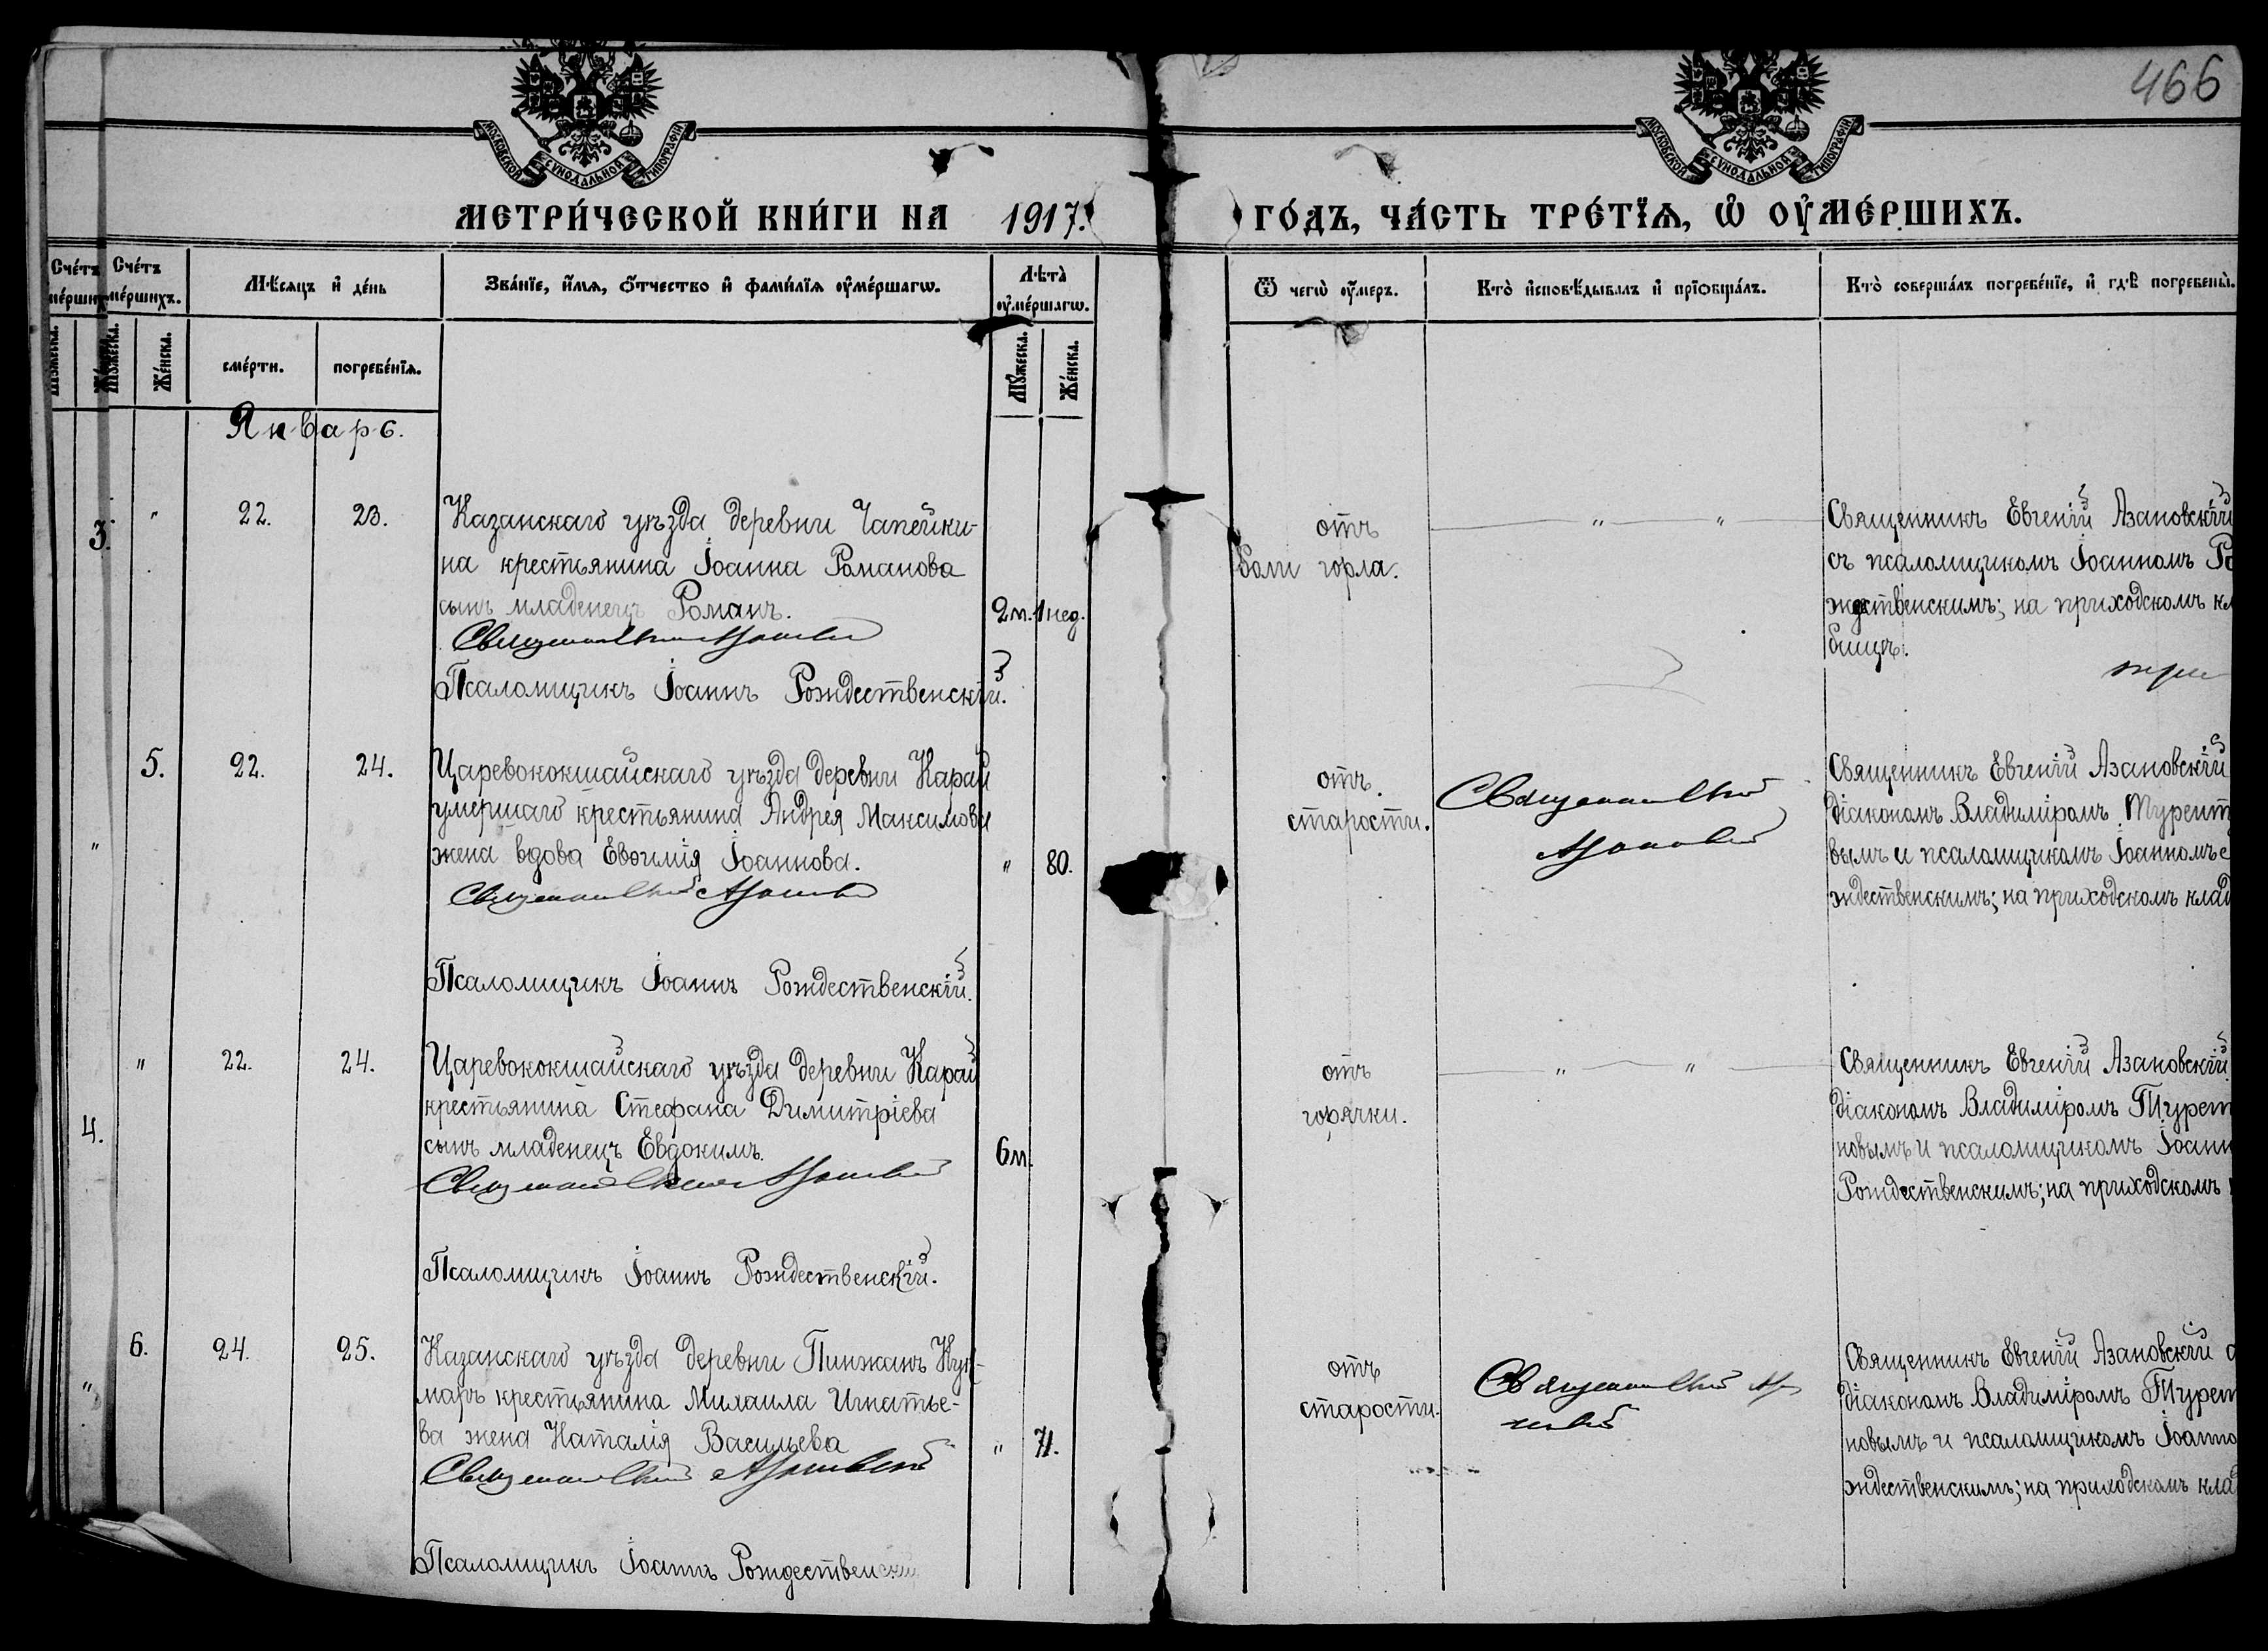 466
МОСКОВСКОЙ СѴНОДАЛЬНОЙ ТИПОГРАФІИ
МОСКОВСКОЙ СѴНОДАЛЬНОЙ ТИПОГРАФІИ
МЕТРИ́ЧЕСКОЙ КНИ́ГИ НА 1917. ГО́ДЪ, ЧА́СТЬ ТРЕ́ТЇѦ, Ѽ ОУ҆МЕ́РШИХЪ.
Сче́тъ Сче́тъ
ме́ршихъ.
Мѣсяцъ и҆ де́нь
Зва́нїе, и҆́мѧ, ѻ҆́тчество и҆ фамилїѧ оу҆ме́ршагѡ.
Лѣта̀
оу҆ме́ршагѡ.
Ѿ чегѡ̀ оу҆́меръ.
Кто̀ и҆сповѣдывалъ и҆ прїѻбща́лъ.
Кто̀ соверша́лъ погребе́нїе, и҆ гдѣ̀ погребены̀.
Мꙋжеска.
Же́нска.
сме́рти.
погребе́нїѧ.
Мꙋ́жеска.
Же́нска.
Январь.
3. " 22. 23.
Казанскаго уѣзда деревни Чапейки-
на крестьянина Іоанна Романова
сынъ младенецъ Романъ. 2м. 1 нед.
Псаломщикъ Іоаннъ Рождественскій.
отъ
боли горла.
" "
Священникъ Евгеній Азановскій
съ псаломщикомъ Іоанномъ Ро
ждественскимъ; на приходскомъ кл
бищѣ.
5. 22. 24.
Царевококшайскаго уѣзда деревни Карай
умершаго крестьянина Андрея Максимова
" жена вдова Евѳимія Іоаннова. " 80.
Псаломщикъ Іоаннъ Рождественскій.
отъ
старости.
Священникъ Евгеній Азановскій
діакономъ Владиміромъ Турепт
вымъ и псаломщикомъ Іоанномъ
ждественскимъ; на приходскомъ клад
" 22. 24.
Царевококшайскаго уѣзда деревни Карай
крестьянина Стефана Димитріева
4. сынъ младенецъ Евдокимъ. 6м.
Псаломщикъ Іоаннъ Рождественскій.
отъ
горячки.
" "
Священникъ Евгеній Азановскій
діакономъ Владиміромъ
новымъ и псаломщикомъ Іоанн
Рождественскимъ; на приходскомъ
6. 24. 25.
Казанскаго уѣзда деревни Пинжанъ Кук-
маръ крестьянина Михаила Игнатье-
" ва жена Наталія Васильева " 71.
Псаломщикъ Іоаннъ Рождественскій
отъ
старости.
Священникъ Евгеній Азановскій с
діакономъ Владиміромъ
новымъ и псаломщикомъ Іоанно
ждественскимъ; на приходскомъ кла